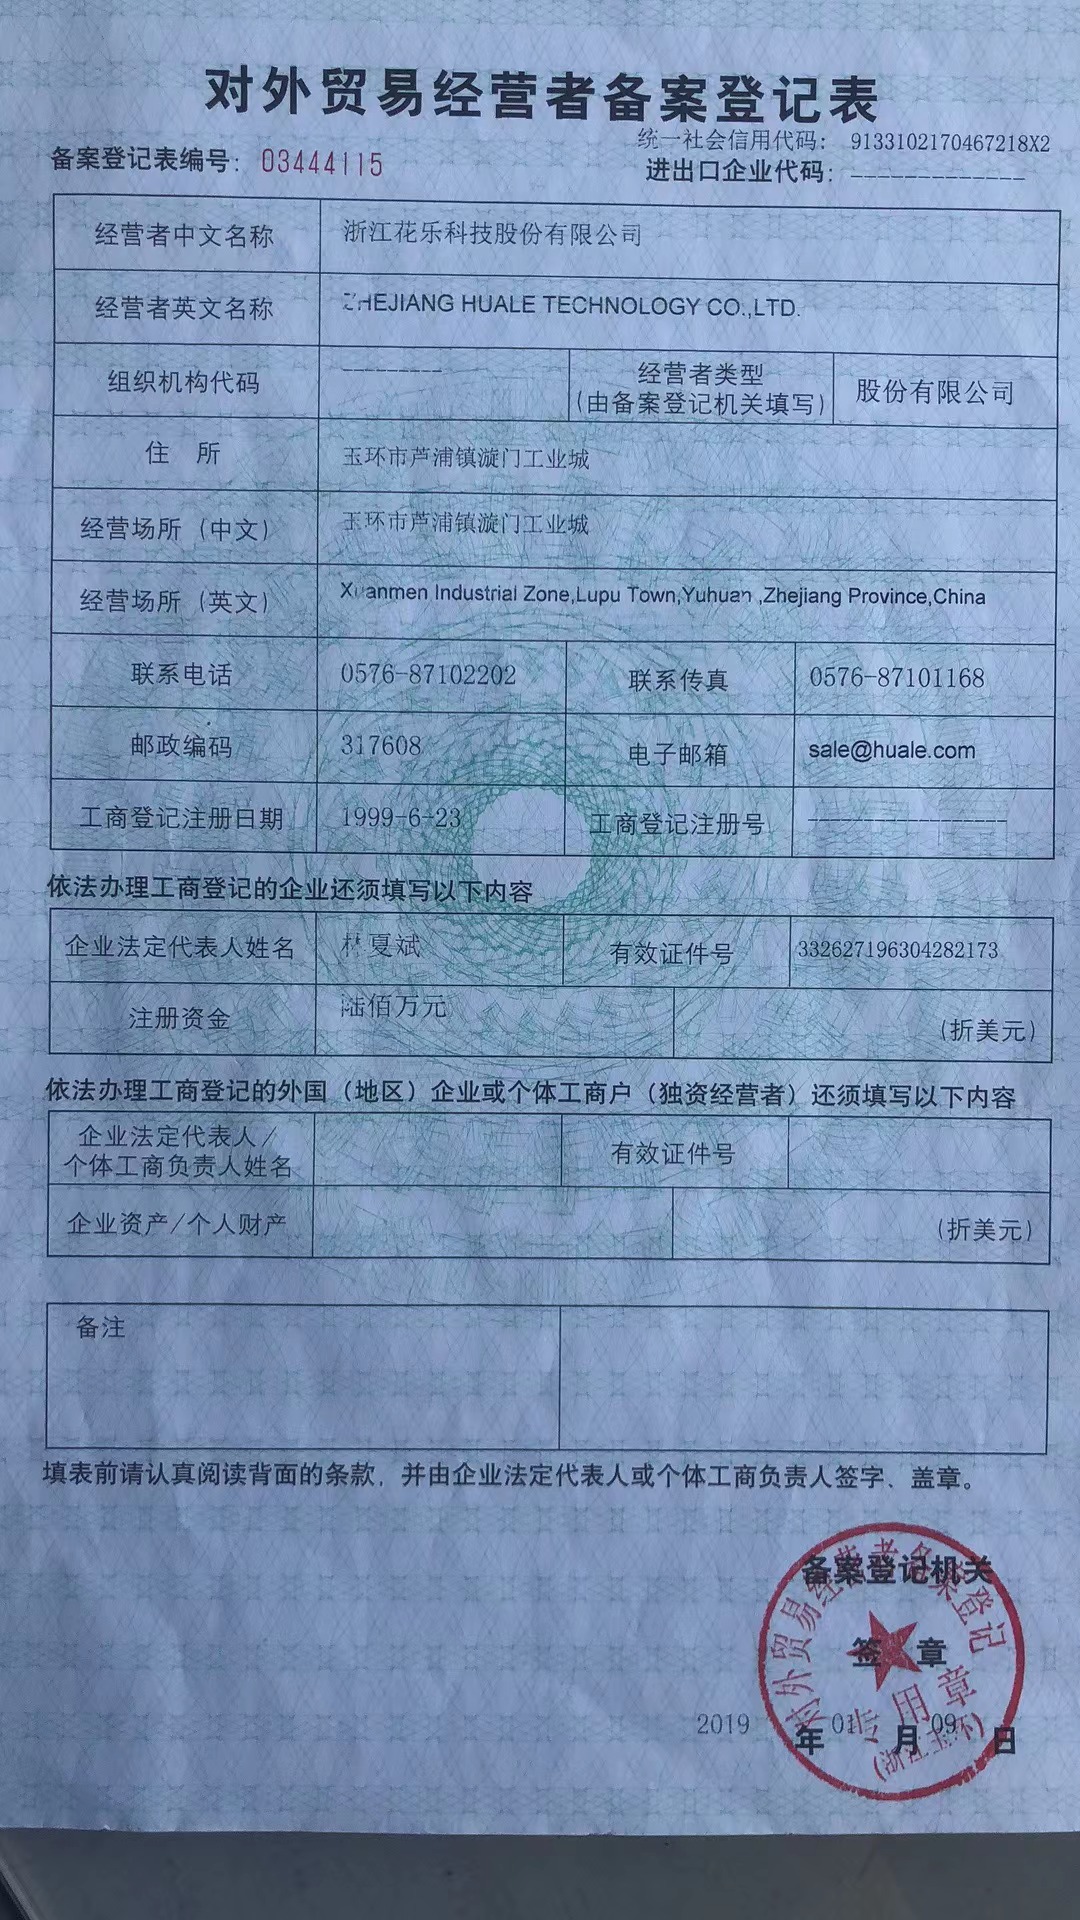 对外贸易经营者备案登记表
统一社会信用代码： 9133102170467218X2
备案登记表编号： 03444115
进出口企业代码： -------------
经营者中文名称 浙江花乐科技股份有限公司
经营者英文名称 ZHEJIANG HUALE TECHNOLOGY CO.,LTD.
组织机构代码 --------- 经营者类型
(由备案登记机关填写) 股份有限公司
住 所 玉环市芦浦镇漩门工业城
经营场所（中文） 玉环市芦浦镇漩门工业城
经营场所（英文） Xuanmen Industrial Zone,Lupu Town,Yuhuan ,Zhejiang Province,China
联系电话 0576-87102202 联系传真 0576-87101168
邮政编码 317608 电子邮箱 sale@huale.com
工商登记注册日期 1999-6-23 工商登记注册号 ------------------
依法办理工商登记的企业还须填写以下内容
企业法定代表人姓名 林夏斌 有效证件号 332627196304282173
注册资金 陆佰万元 (折美元)
依法办理工商登记的外国（地区）企业或个体工商户（独资经营者）还须填写以下内容
企业法定代表人/
个体工商负责人姓名 有效证件号
企业资产/个人财产 (折美元)
备注
填表前请认真阅读背面的条款，并由企业法定代表人或个体工商负责人签字、盖章。
备案登记机关
签 章
2019 年 01 月 09 日
对外贸易经营者备案登记
专用章
(浙江玉环)